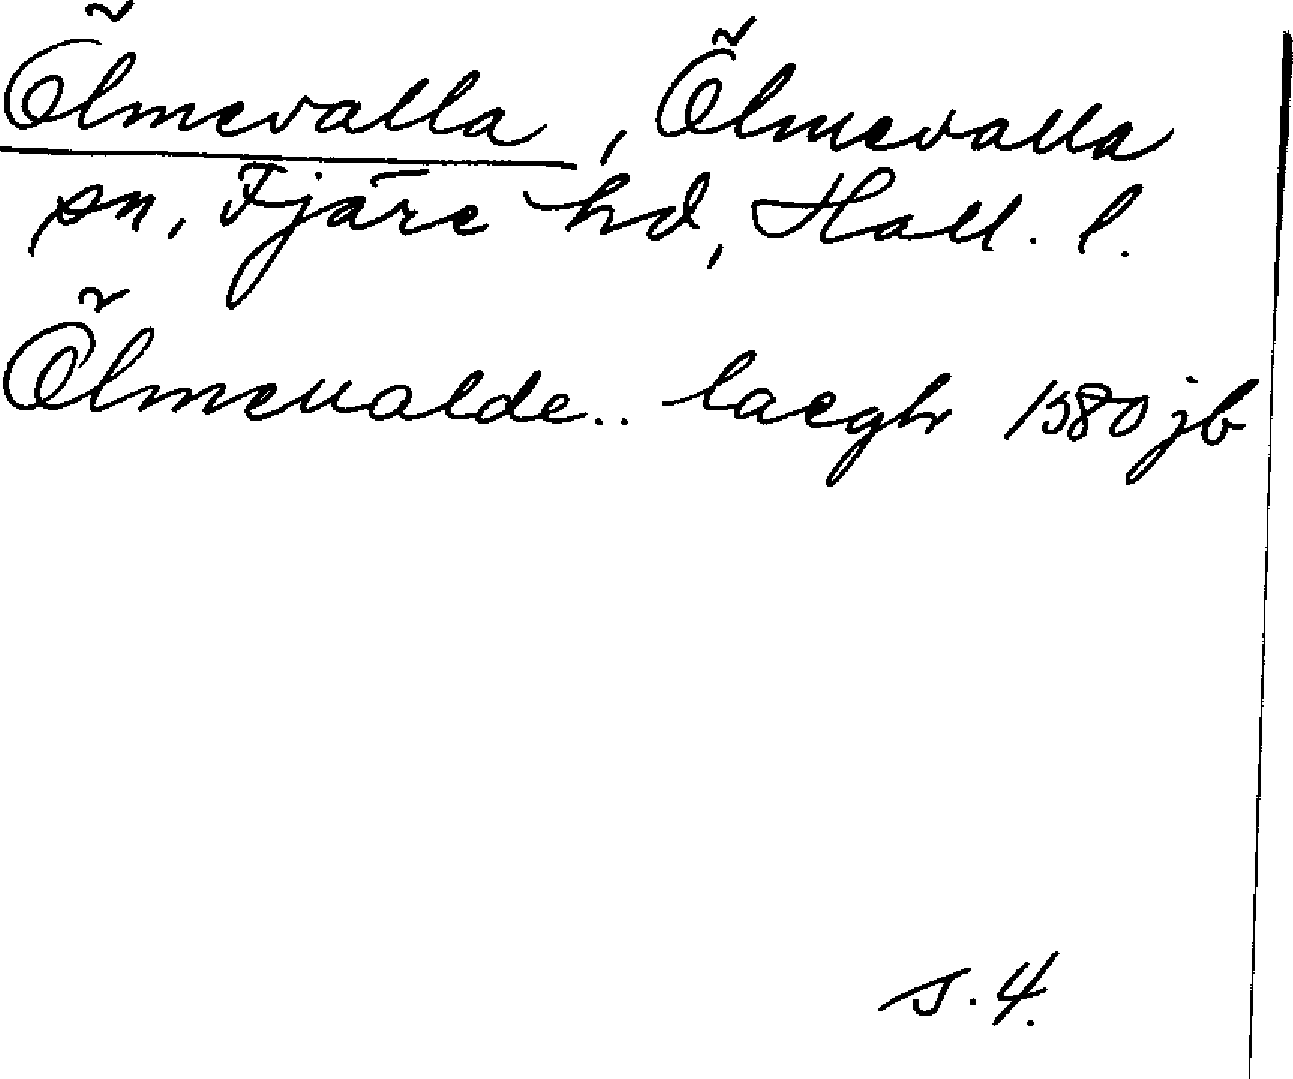 Ölmevalla, Ölmevalla
sn, Fjäre hd, Hall. l.
Ölmeualde.. laegh 1580 jb
s. 4.